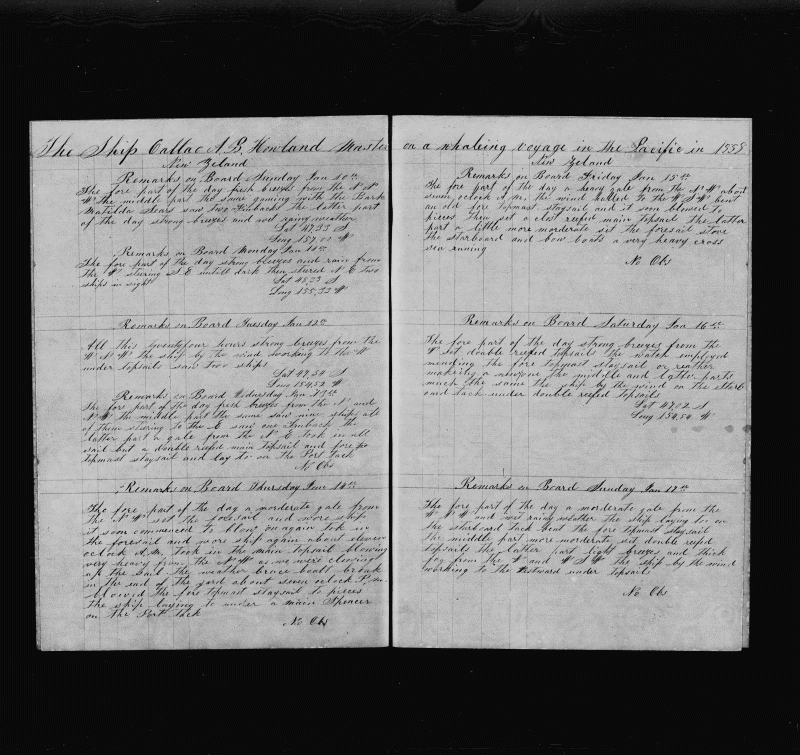 The Ship Callao A. B. Howland Master
New Zeland
Remarks on Board Sunday Jan 10th
The fore part of the day fresh breezes from the N N
W the middle part the same gaming with the Bark
Matilda Sears saw two Finbacks the latter part
of the day strong breezes and wet rainy weather
Lat 47,33 S
Long 157,00 W
Remarks on Board Monday Jan 11th
The fore part of the day strong breezes and rain from
the W stering S E untill dark then stered N E two
ships in sight
Lat 48,23 S
Long 155,33 W
Remarks on Board Tuesday Jan 12th
All this twentyfour hours strong brezes from the
W N W the ship by the wind working to the W
under topsails saw two ships
Lat 47,54 S
Long 154,53 W
Remarks on Board Wednesday Jan 13th
The fore part of the day fresh brezes from the N and
N W the middle part the same saw nine ships all
of them stering to the E saw one Finback the
latter part a gale from the N E took in all
sail but a double reefed main topsail and fore
topmast staysail and lay to on the Port tack
No Obs
Remarks on Board Thursday Jan 14th
The fore part of the day a morderate gale from
the N W set the foresail and wore ship
it soon commenced to blow on again tok in
the foresail and wore ship again about eleven
oclock A.M. took in the main topsail blowing
very heavy from the N W as we were clewing
up the sail the weather brace boalt broak
in the end of the yard about seven oclock P.m.
blowed the fore topmast staysail to pieces
the ship laying to under a main Spencer
on the Port tack
No Obs
on a whaleing voyage in the Pacific in 1858
New Zeland
Remarks on Board Friday Jan 15th
The fore part of the day a heavy gale from the N W about
seven oclock A.M. the wind halled to the W S W bent
an old fore topmast staysail and it soon blowed to
pieces then set a clost reefed main topsail the latter
part a little more morderate set the foresail stove
the starboard and bow boats a very heavy cross
sea runing
No Obs
Remarks on Board Saturday Jan 16th
The fore part of the day strong brezes from the
W set double reefed topsails the watch employed
mending the fore topmast staysail or reather
makeing a new one the middle and latter parts
much the same the ship by the wind on the Starb
oard tack under double reefed topsails
Lat 47,02 S
Long 154,54 W
Remarks on Board Sunday Jan 17th
The fore part of the day a morderate gale from the
W N W and wet rainy weather the ship laying to on
the sturboard tack bent the fore topmast staysail
the middle part more morderate set double reefed
topsails the latter part light brezes and thick
fog from the W and W S W the ship by the wind
working to the Westward under topsails
No Obs